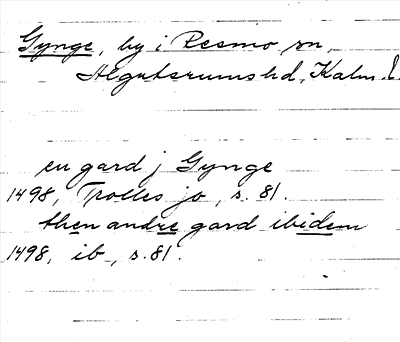 Gynge, by i Resmo sn,
Algutsrums hd, Kalm. l.
en gard j Gynge
1498, Trolles jo, s. 81.
then andre gard ibidem
1498, ib, s. 81.